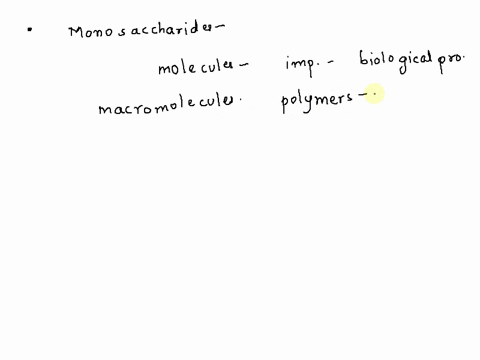 • Monosaccharides -
molecules - imp. - biological pro.
macromolecules. polymers -